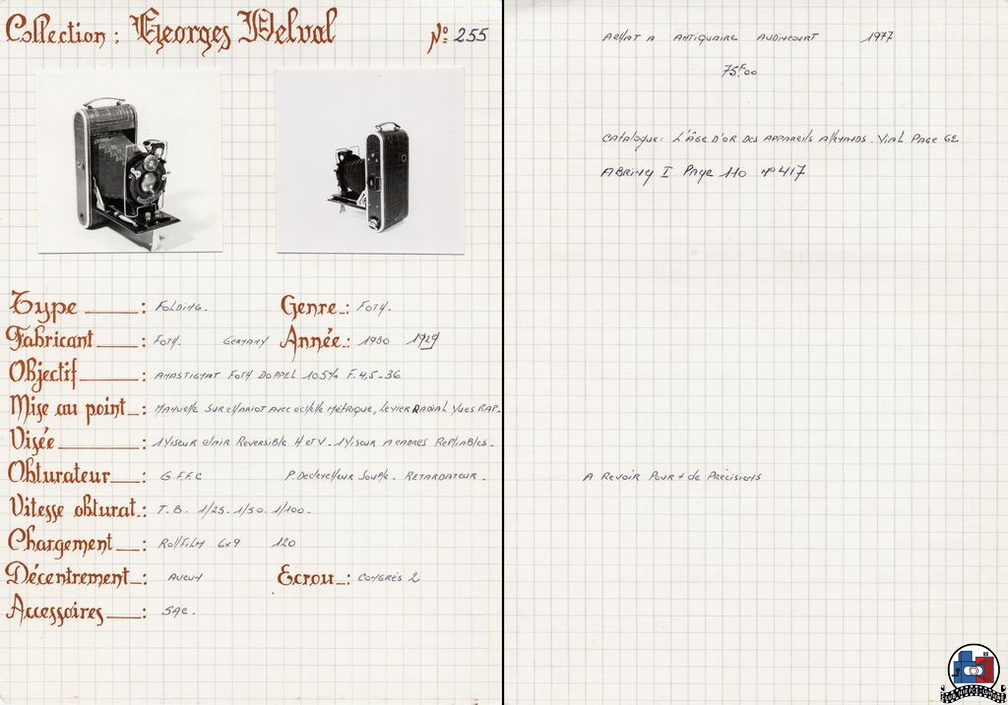 Collection : Georges Delval Nº 255
Type : Folding. Genre : Foth.
Fabricant : Foth. Germany Année : 1930 1929
Objectif : Anastigmat Foth Doppel 105 F.4,5-36
Mise au point : Manuelle sur chariot avec échelle métrique, levier radial
Visée : 1 Viseur clair Reversible H et V. 1 Viseur A cadres Repliables.
Obturateur : G F.F.C P. Déclencheur Souple. Retardateur.
Vitesse obturat. : T. B. 1/25. 1/50. 1/100.
Chargement : Rollfilm 6x9 120
Décentrement : Aucun Ecrou : Congrès 2
Accessoires : SAC.
Achat A Antiquaire Audincourt 1977
75F00
Catalogue: L'âge d'or des appareils allemands. Vial Page 62
Abring I Page 110 nº 417
A Revoir Pour + de Précisions